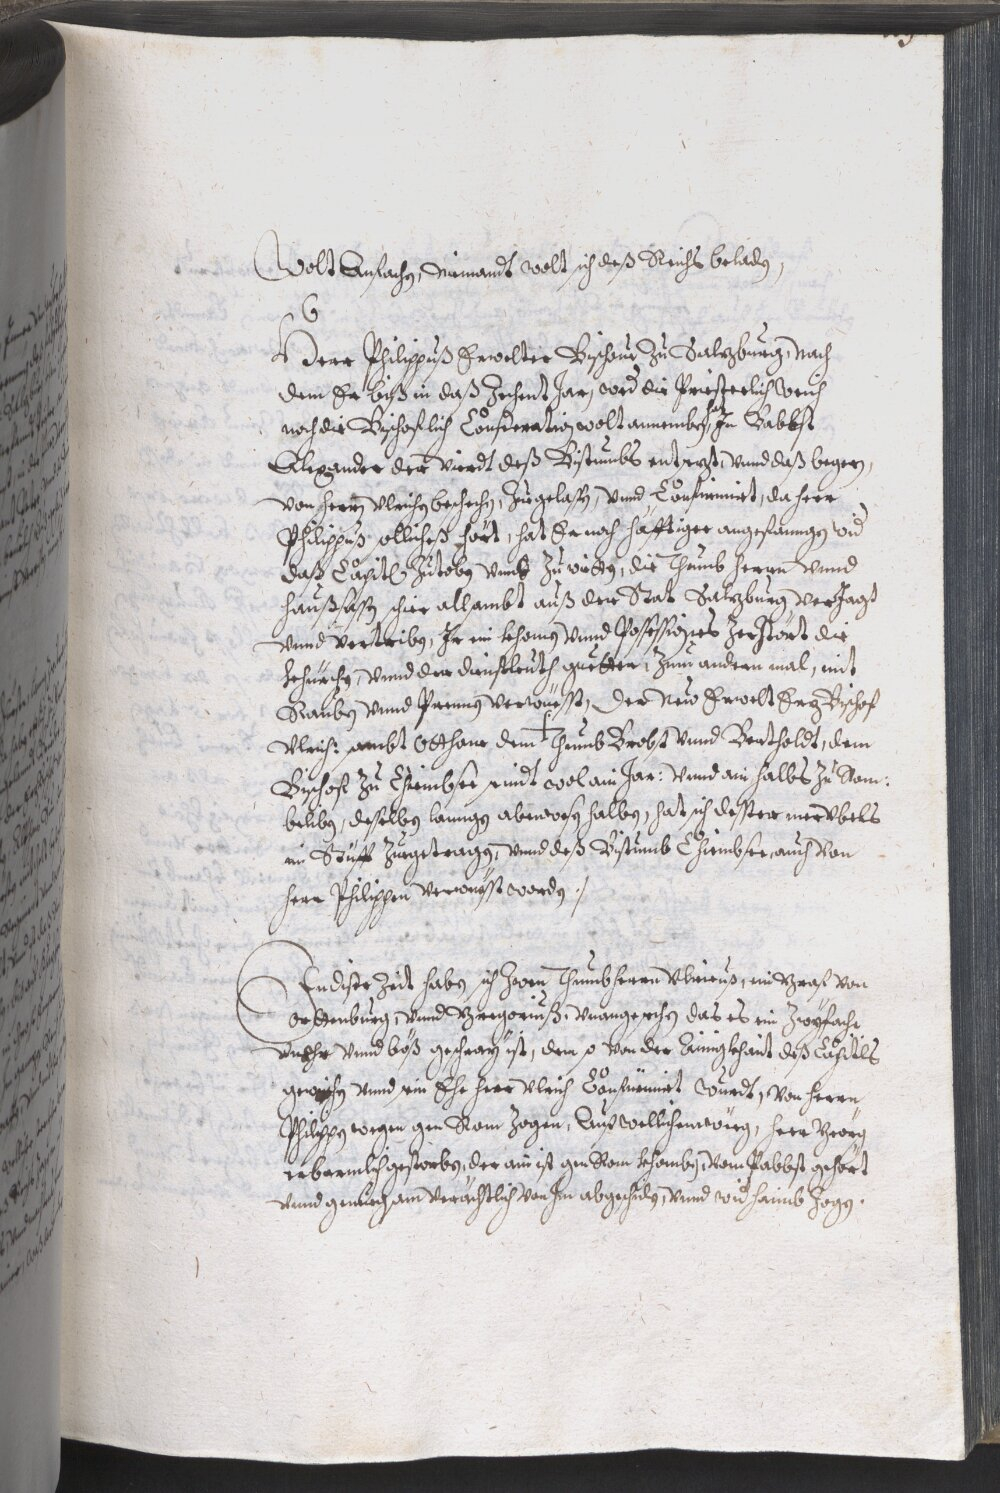 Wolt Anfachen, Niemandt wolt sich deß Reichs beladen,
6
Herr Philippuß Erwelter Bischove zu Saltzburg, nach
dem Er biß in daß Zehent Jar, word die Priesterlich Weich
noch die Bischoflich Consecration wolt annemben, Jn Babbst
Alexander der Vierdt deß Bistumbs entsetzt, vnnd daß begern,
von herrn Vlrichen beschechen, Zuegelassen, vnnd Confirmirt, da herr
Philippuß solliches hört, hat Er noch häfftiger angefanngen wid
daß Capitl Zutoben vnnd Zuwietten, die Thumb herrn vnnd
haußsässen schier allsambt auß der Stat Saltzburg, verJagt
vnnd vertriben, Jr ein khomen vnnd Possessiones Zerstört die
Khürchen, vnnd der dienstleuth guetter, Zum andern mal, mit
Rauben vnnd Prennen verwüesst, Der new Erwelt Ertz Bischof
Vlrich: sambt Otthonr dem Thumb Brobst vnnd Bertholdt, dem
Bischof Zu Chiembsee seindt wol ain Jar: vnnd ain halbs Zu Rom:
beliben, desselben lanngen abwesen halben, hat sich dester mer Vbels
im Stüfft Zuegetragen, vnnd deß Bistumb Chiembsee, auch von
herr Philippen verwüesst worden ./
In diser Zeit haben sich Zwen Thumbherrn Vlricus, ein Graf von
Orttenburg, vnnd Gregoriuß, vnangesechen das es ein Zwyfache
vnehr vnnd böß geschray ist, dem so von der Ainigkhait deß Capitls
gewichen vnnd ein Ehe herr Vlrich Confirmirt wurdt, von herrn
Philippen wegen gen Rom Zogen, Auf wellichem weeg, herr Georg
erbermlich gestorben, der ain ist gen Rom khomben, vom Pabbst gehört
vnnd gemueg sam verächtlich von Jm abgeschiden, vnnd wid haimb Zogen.